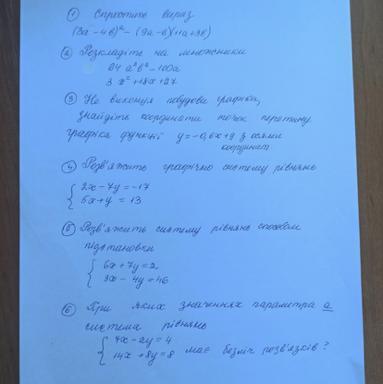 ① Спростити вираз
(3а - 4в)² - (9а - в)(11а + 3в)
② Розкладіть на множники
3x² + 18x + 27
③ Не виконуя побудови графіка,
знайдіть координати точок перетину
графіка функції y = -0,6x + 9 з осями
координат
④ Розв'яжить графічно систему рівнянь
{ 2x - 7y = -17
5x + y = 13
⑤ Розв'яжить систему рівнянь способом
підстановки
{ 6x + 7y = 2,
3x - 4y = 46
⑥ При яких значеннях параметра а
система рівнянь
{ 7x - 2y = 4
14x + 8y = 8 має безліч розв'язків?